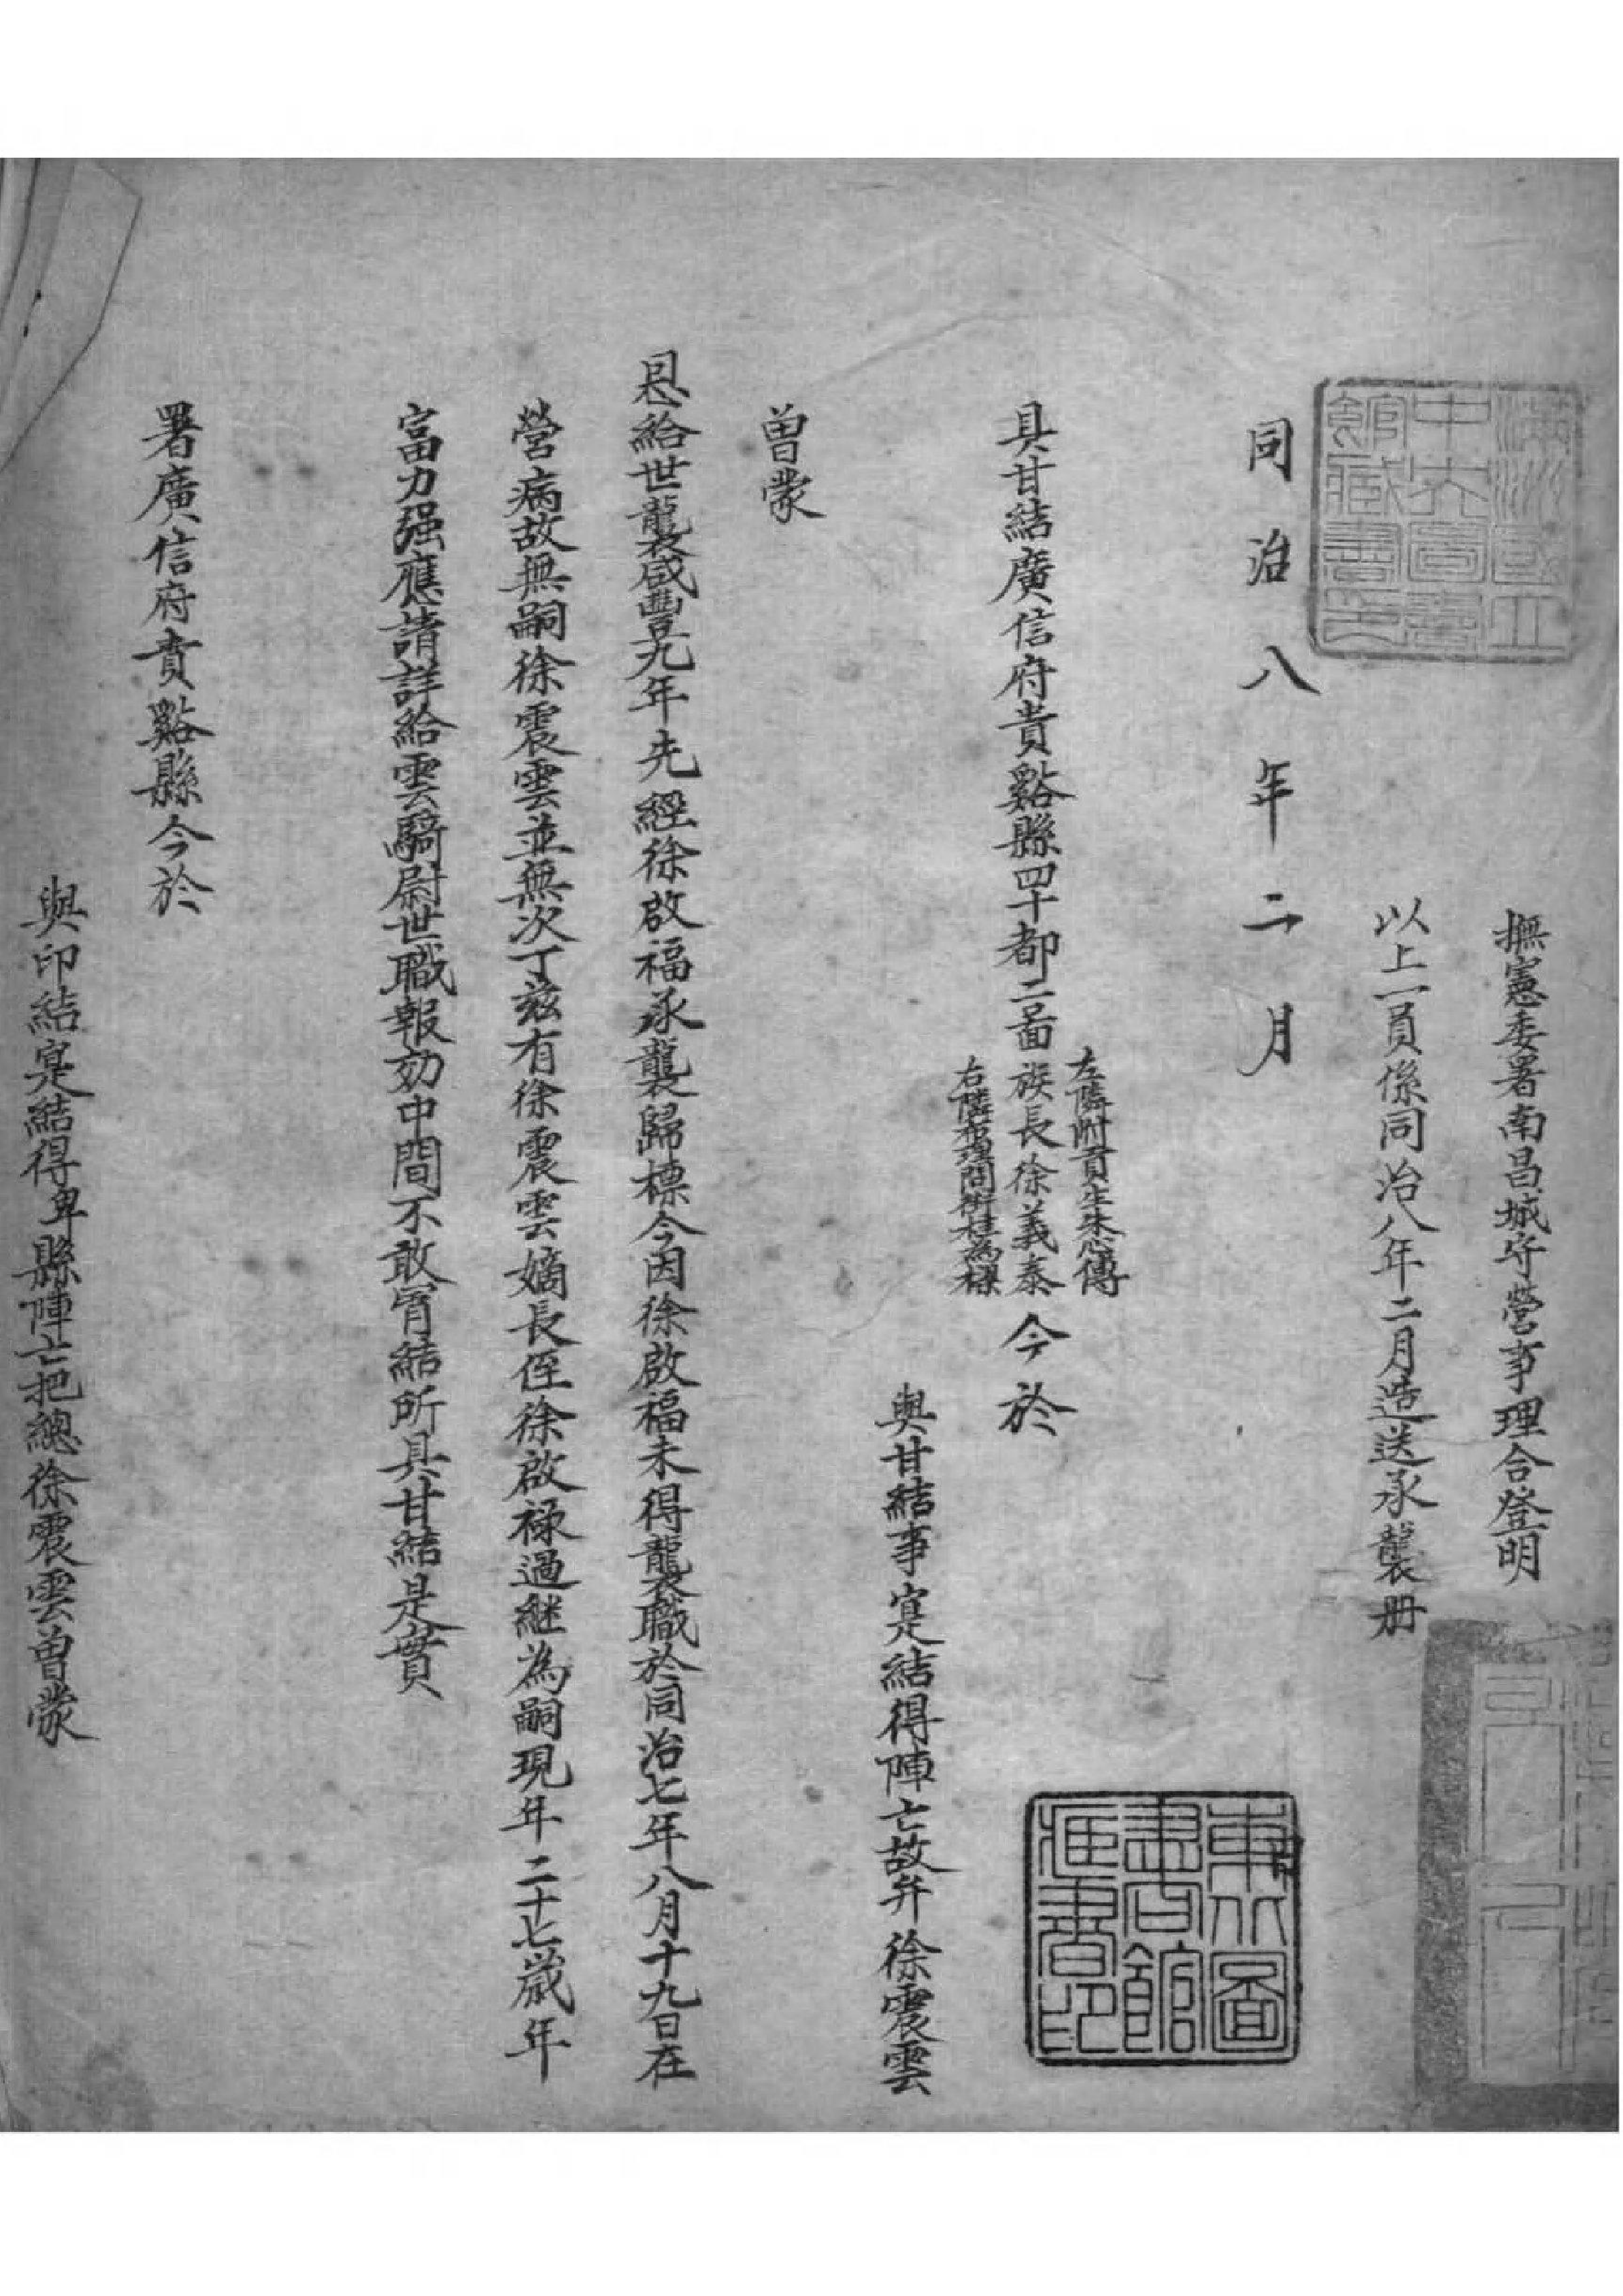 撫憲委署南昌城守營事理合登明
以上一員係同治八年二月造送承襲册
滿洲國立中央圖書館藏書之印
同治八年二月
左隣附貢生朱心傳
具甘結廣信府貴谿縣四十都二啚族長徐義泰今於
右隣布理問銜桂為樑
與甘結事寔結得陣亡故弁徐震雲
東北圖書館藏書印
曾蒙
恩給世襲咸豐九年先經徐啟福承襲歸標今因徐啟福未得襲職於同治七年八月十九日在
營病故無嗣徐震雲並無次丁兹有徐震雲嫡長侄徐啟祿過継為嗣現年二十七歲年
富力强應請詳給雲騎尉世職報効中間不敢冐結所具甘結是實
署廣信府貴谿縣今於
與印結寔結得卑縣陣亡把總徐震雲曾蒙